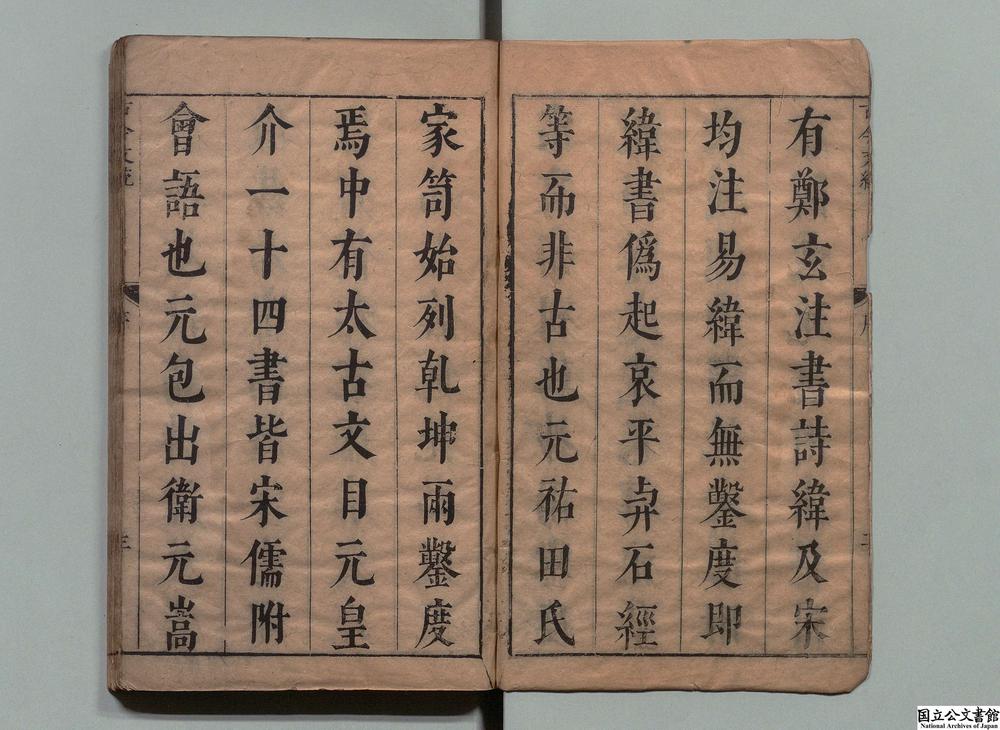 有鄭玄注書詩緯及宋
均注易緯而無鑿度即
緯書偽起哀平弃石經
等而非古也元祐田氏
家笥始列乹坤兩鑿度
焉中有太古文目元皇
介一十四書皆宋儒附
會語也元包出衛元嵩
三
国立公文書館
National Archives of Japan